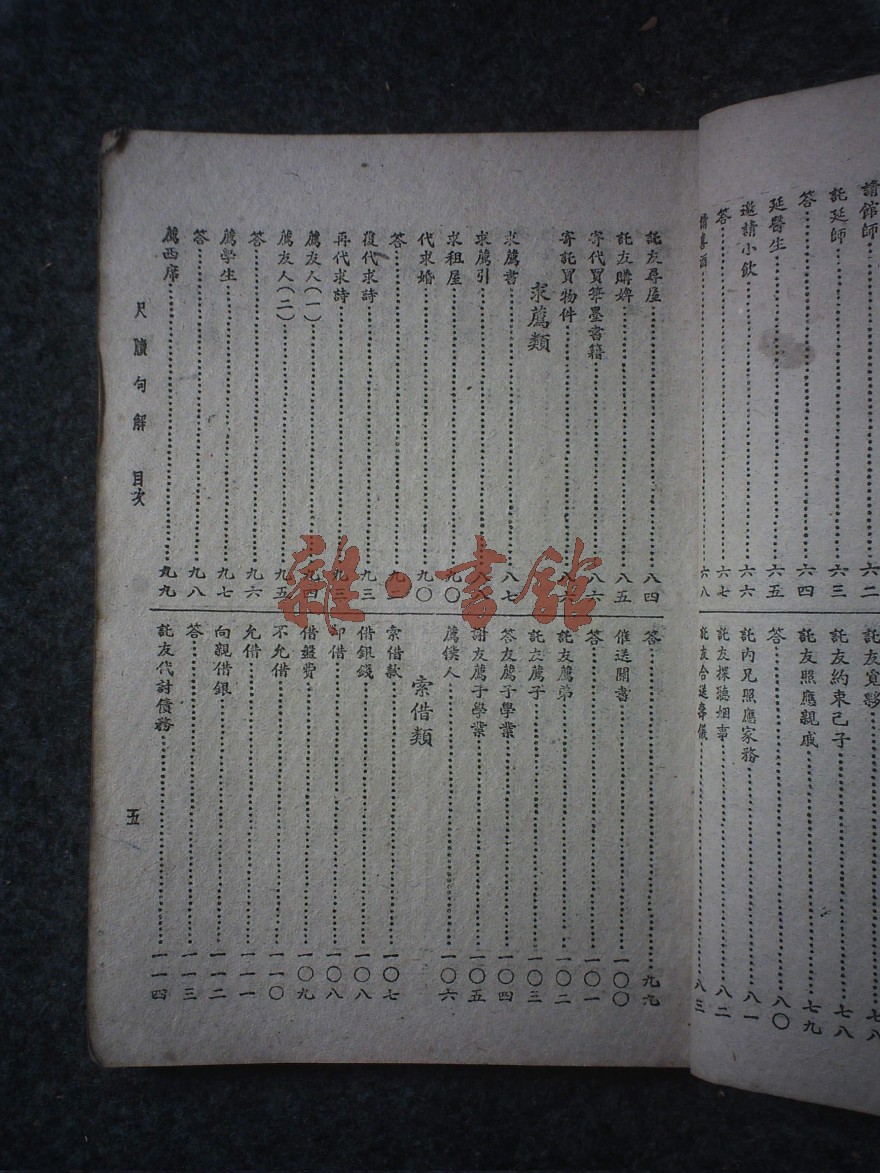 請館師 六二
託延師 六三
答 六四
延醫生 六五
邀請小飲 六六
答 六七
六八
託友寬夥 七八
託友約束己子 七八
託友照應親戚 七九
答 八〇
託內兄照應家務 八一
託友探聽姻事 八二
託友代送壽儀 八三
託友尋屋 八四
託友購婢 八五
寄代買筆墨書籍 八六
寄託買物件 八六
求薦類
求薦書 八七
求薦引 八八
求租屋 九〇
代求婚 九〇
答 九二
復代求詩 九三
再代求詩 九三
薦友人(一) 九四
薦友人(二) 九五
答 九六
薦學生 九七
答 九八
薦西席 九九
答 九九
催送關書 一〇〇
答 一〇一
託友薦弟 一〇二
託友薦子 一〇三
答友薦子學業 一〇四
謝友薦子學業 一〇五
薦僕人 一〇六
索借類
索借款 一〇七
借銀錢 一〇八
即借 一〇八
借盤費 一〇九
不允借 一一〇
允借 一一一
向親借銀 一一二
答 一一三
託友代討債務 一一四
尺牘句解 目次
五
雜·書館